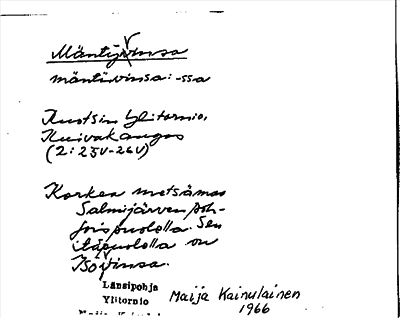 Mäntyvinsa
mäntivinsa: -ssa
Ruotsin Ylitornio,
Kuivakangas
(2: 25V-26V)
Korkea metsämaa
Salmijärven poh-
joispuolella. Sen
itäpuolella on
Isovinsa.
Länsipohja
Ylitornio
Maija Kainulainen
1966